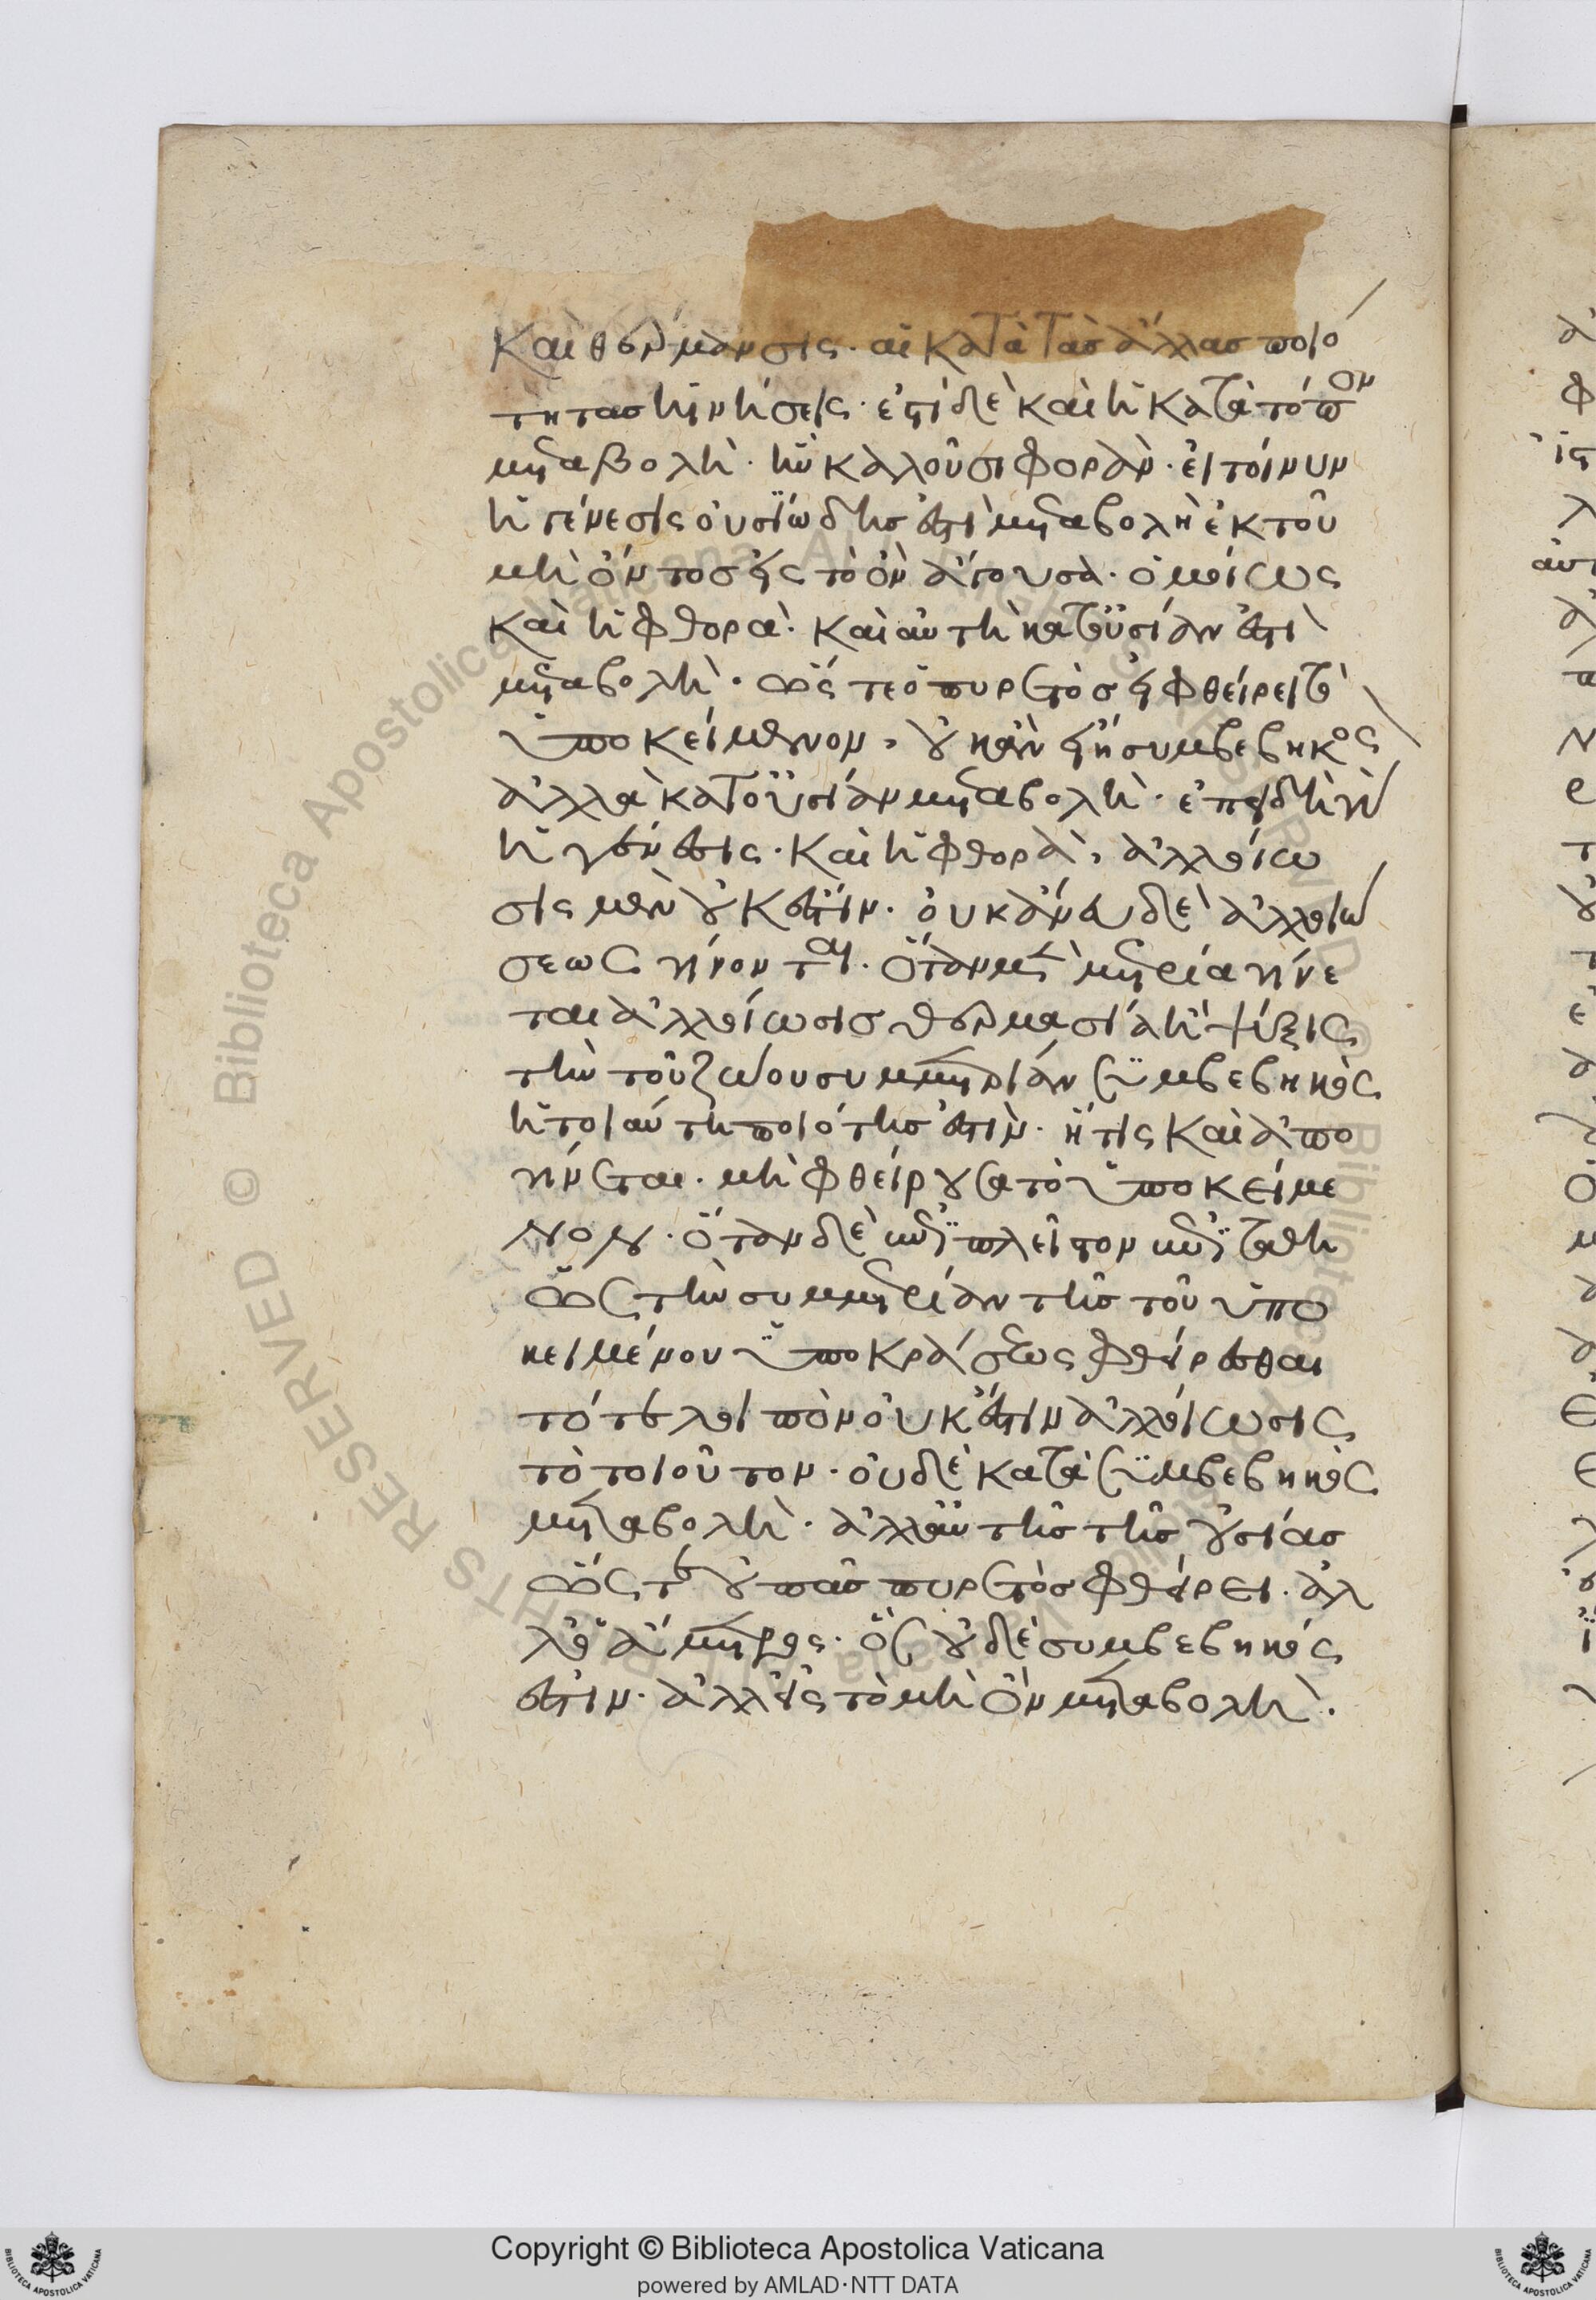 καὶ θέρμανσις· αἱ κατὰ τὰς ἄλλας ποιό
τητας κινήσεις· ἔτι δὲ καὶ ἡ κατὰ τόπον
μεταβολὴ· ἣν καλοῦσι φορὰν· εἰ τοίνυν
ἡ γένεσις οὐσιώδης ἐστὶ μεταβολὴ ἐκ τοῦ
μὴ ὄντος εἰς τὸ ὂν ἄγουσα· ὁμοίως
καὶ ἡ φθορὰ· καὶ αὐτὴ κατ' οὐσίαν ἐστὶ
μεταβολὴ· ὥς τε ὁ πυρετὸς εἰ φθείρει τὸ
ὑποκείμενον, οὐκ ἂν εἴη συμβεβηκὸς
ἀλλὰ κατ' οὐσίαν μεταβολὴ· ἐπειδὴ γὰρ
ἡ γένεσις· καὶ ἡ φθορὰ, ἀλλοίω
σις μὲν οὐκ ἔστιν· οὐκ ἄνευ δὲ ἀλλοιώ
σεως γίνονται· ὅταν μὲν μετρία γίνε
ται ἀλλοίωσις θερμασία ἢ ψύξις
τὴν τοῦ ζώου συμμετρίαν συμβεβηκὸς
ἡ τοιαύτη ποιότης ἐστὶν· ἥτις καὶ ἀπο
γίνεται· μὴ φθείρουσα τὸ ὑποκείμε
νον· ὅταν δὲ ἐπὶ πλεῖστον ἐπιταθῇ
ὡς τὴν συμμετρίαν τῆς τοῦ ὑπο
κειμένου ὑποκράσεως φθείρεσθαι
τότε λοιπὸν οὐκ ἔστιν ἀλλοίωσις
τὸ τοιοῦτον· οὐδὲ κατὰ συμβεβηκὸς
μεταβολὴ· ἀλλ' αὐτῆς τῆς οὐσίας
ὥς τε οὐ πᾶς πυρετὸς φθείρει· ἀλ
λ' ὁ ἄμετρος· ὃς οὐδὲ συμβεβηκός
ἐστιν· ἀλλ' εἰς τὸ μὴ ὂν μεταβολὴ.
Copyright © Biblioteca Apostolica Vaticana
powered by AMLAD·NTT DATA